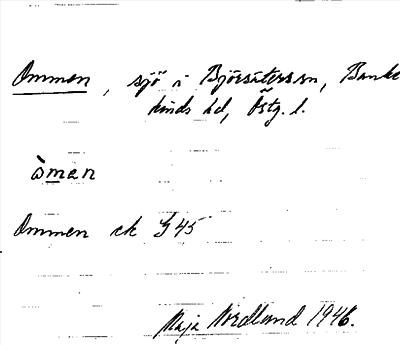 Ommen, sjö i Björsäters sn, Banke
kinds hd, Östg. l.
òman
Ommen ek G 45
Maja Nordlund 1946.